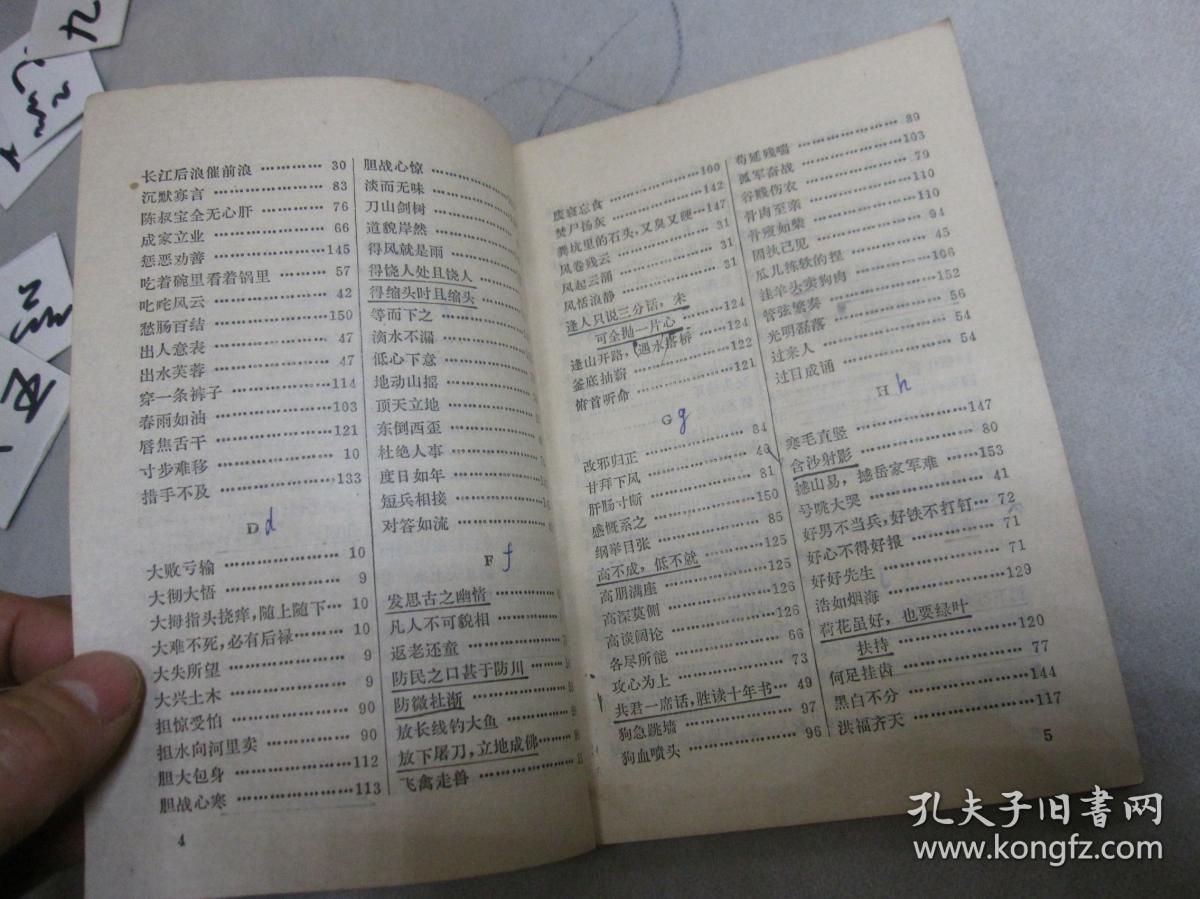 长江后浪催前浪 ………… 30
沉默寡言 ………………… 83
陈叔宝全无心肝 ………… 76
成家立业 ………………… 66
惩恶劝善 …………………145
吃着碗里看着锅里 ……… 57
叱咤风云 ………………… 42
愁肠百结 …………………150
出人意表 ………………… 47
出水芙蓉 ………………… 47
穿一条裤子 ………………114
春雨如油 …………………103
唇焦舌干 …………………121
寸步难移 ………………… 10
措手不及 …………………133
D d
大败亏输 ………………… 10
大彻大悟 ………………… 9
大拇指头挠痒，随上随下… 10
大难不死，必有后禄……… 10
大失所望 ………………… 9
大兴土木 ………………… 9
担惊受怕 ………………… 90
担水向河里卖 …………… 90
胆大包身 …………………112
胆战心寒 …………………113
4
胆战心惊
淡而无味
刀山剑树
道貌岸然
得风就是雨
得饶人处且饶人
得缩头时且缩头
等而下之
滴水不漏
低心下意
地动山摇
顶天立地
东倒西歪
杜绝人事
度日如年
短兵相接
对答如流
F f
发思古之幽情
凡人不可貌相
返老还童
防民之口甚于防川
防微杜渐
放长线钓大鱼
放下屠刀，立地成佛
飞禽走兽
废寝忘食 …………………100
焚尸扬灰 …………………142
粪坑里的石头，又臭又硬…147
风卷残云 ………………… 31
风起云涌 ………………… 31
风恬浪静 ………………… 31
逢人只说三分话，未
可全抛一片心 …………124
逢山开路，遇水搭桥 ……124
釜底抽薪 …………………122
俯首听命 …………………121
G g
改邪归正 ………………… 84
甘拜下风 ………………… 40
肝肠寸断 ………………… 81
感慨系之 …………………150
纲举目张 ………………… 85
高不成，低不就 …………125
高朋满座 …………………125
高深莫测 …………………126
高谈阔论 …………………126
各尽所能 ………………… 66
攻心为上 ………………… 73
共君一席话，胜读十年书… 49
狗急跳墙 ………………… 97
狗血喷头 ………………… 96
苟延残喘 ………………… 89
孤军奋战 …………………103
谷贱伤农 ………………… 79
骨肉至亲 …………………110
骨瘦如柴 …………………110
固执己见 ………………… 94
瓜儿拣软的捏 …………… 45
挂羊头卖狗肉 ……………106
管弦繁奏 …………………152
光明磊落 ………………… 56
过来人 …………………… 54
过目成诵 ………………… 54
H h
寒毛直竖 …………………147
含沙射影 ………………… 80
撼山易，撼岳家军难 ……153
号咷大哭 ………………… 41
好男不当兵，好铁不打钉… 72
好心不得好报 …………… 71
好好先生 ………………… 71
浩如烟海 …………………129
荷花虽好，也要绿叶
扶持 ……………………120
何足挂齿 ………………… 77
黑白不分 …………………144
洪福齐天 …………………117
5
孔夫子旧书网
www.kongfz.com